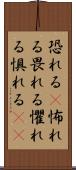 恐れる 怖れ
る畏れる懼れ
る惧れる